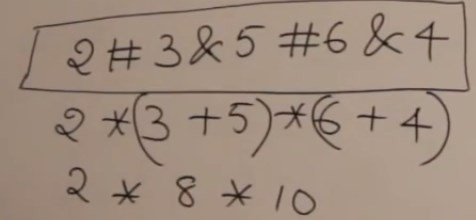 2 # 3 & 5 # 6 & 4
2 * (3 + 5) * (6 + 4)
2 * 8 * 10